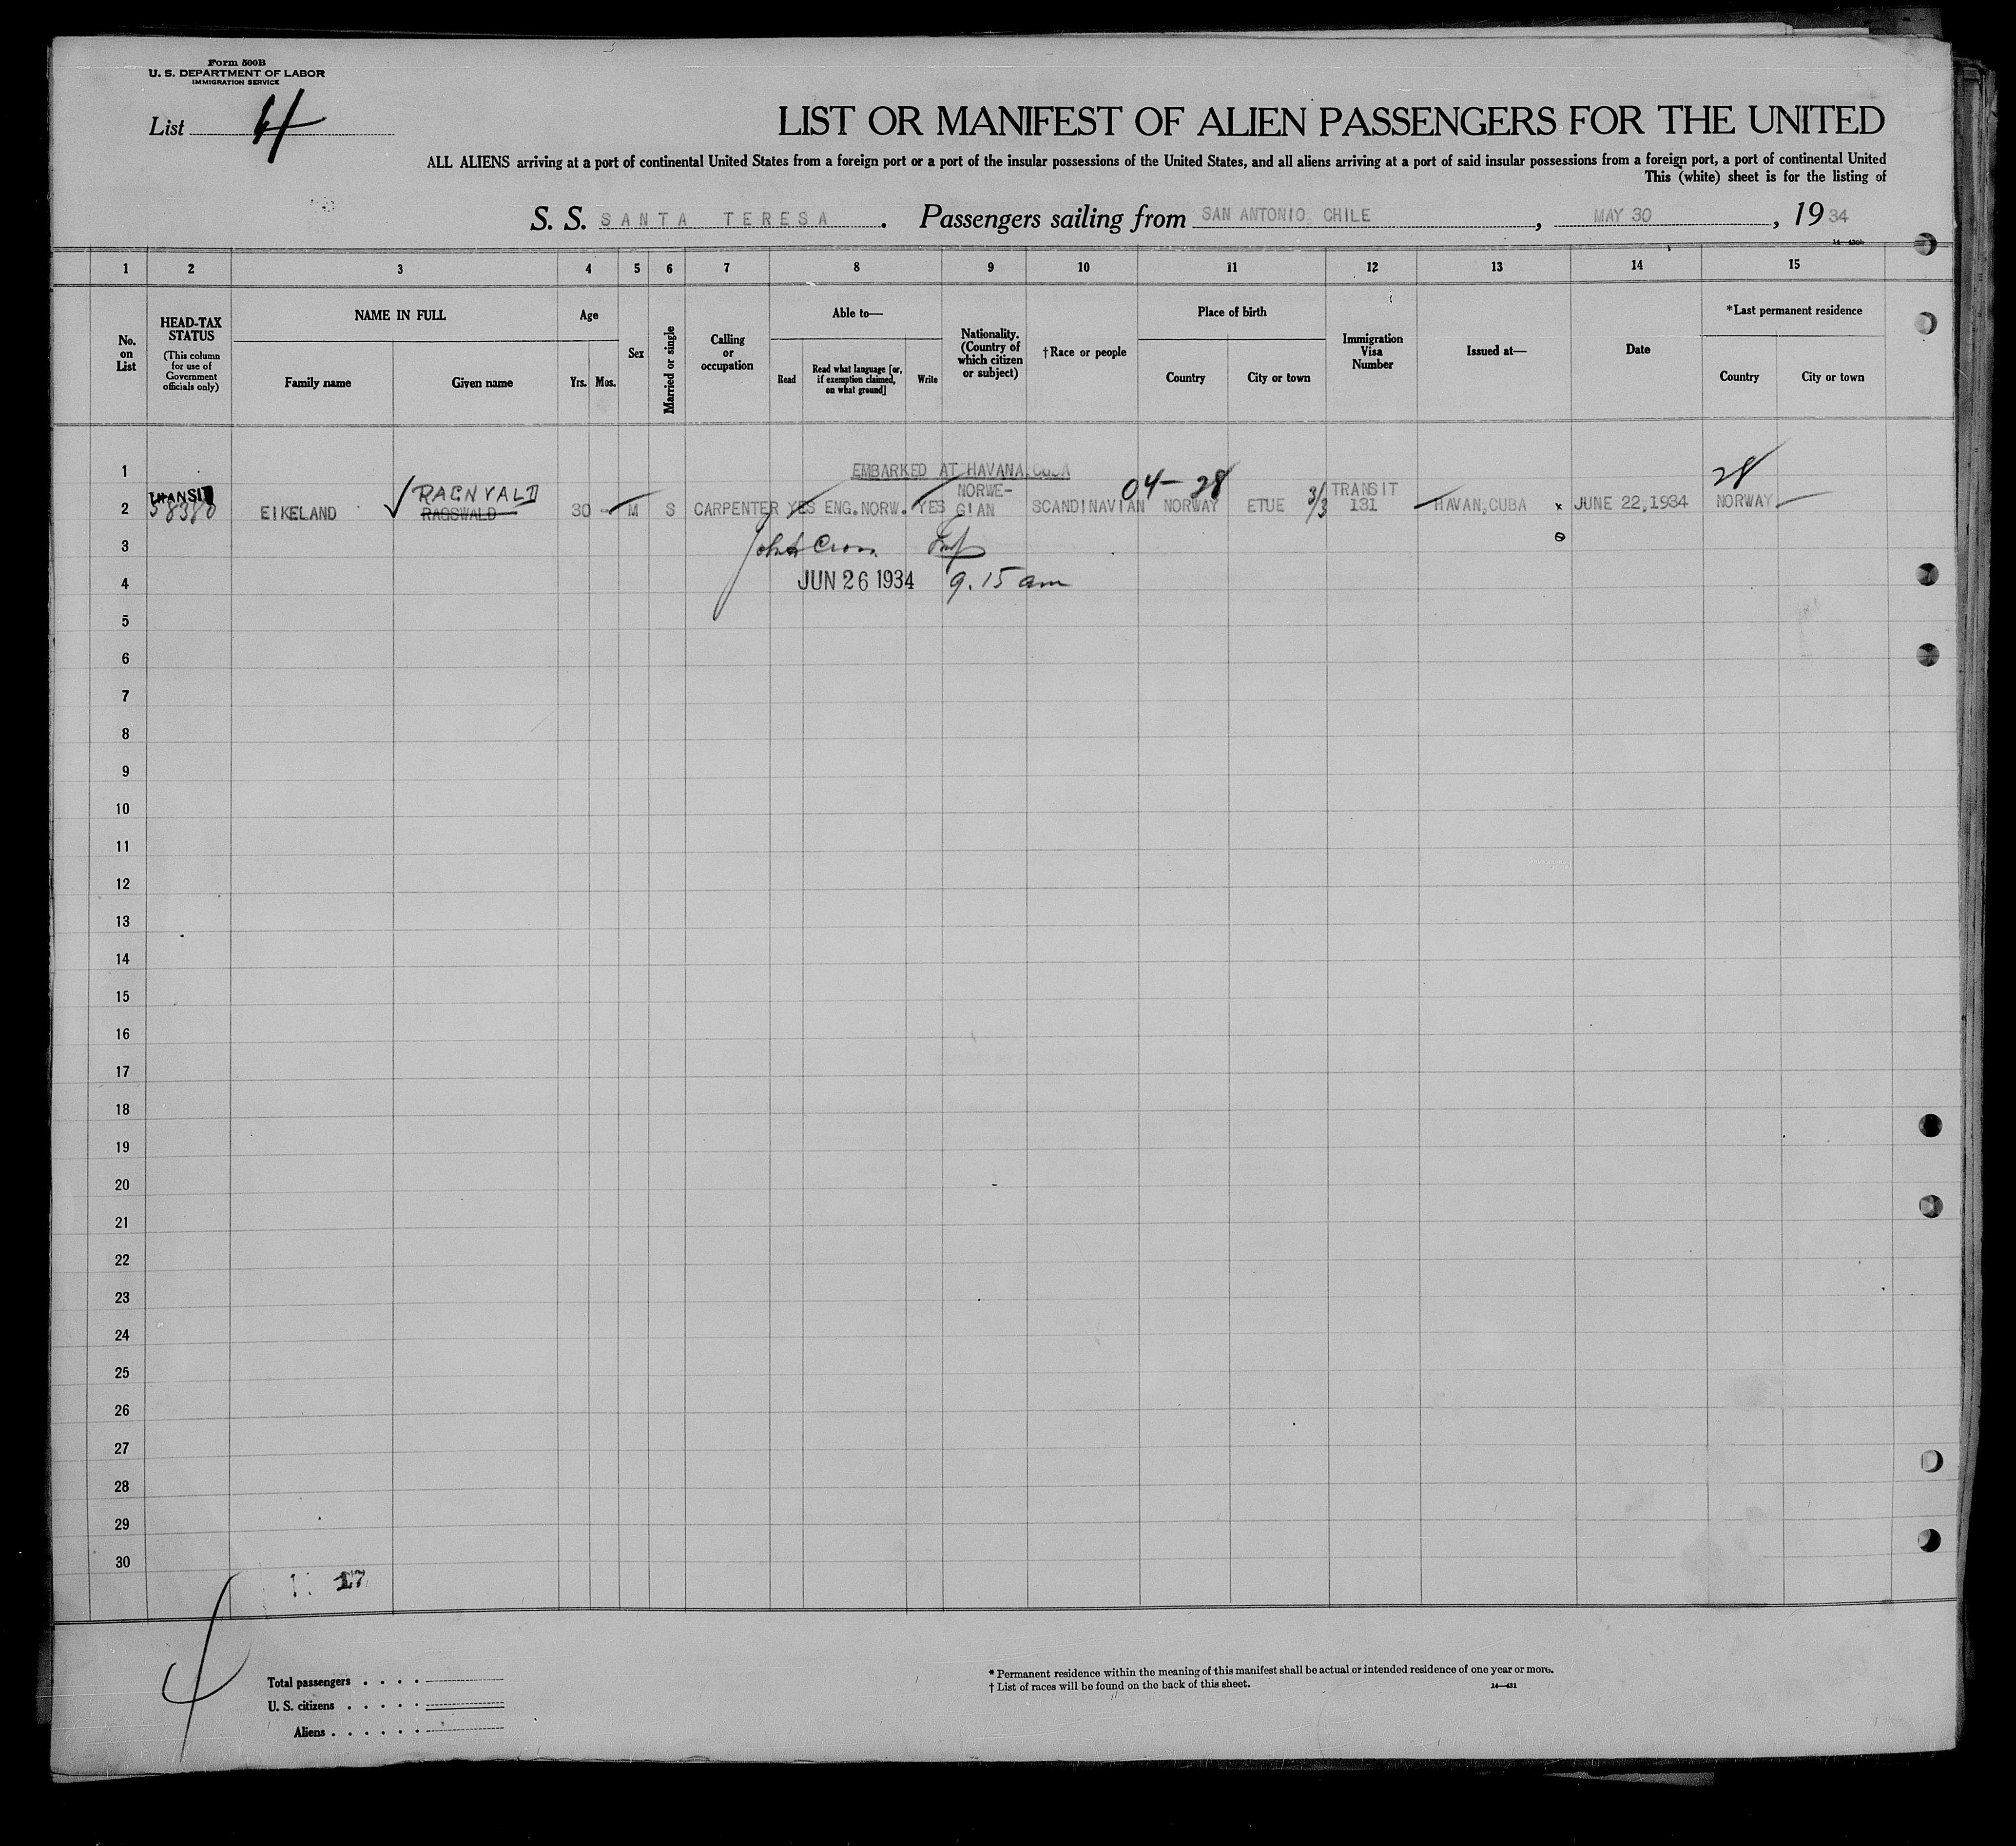 Form 500B
U. S. DEPARTMENT OF LABOR
IMMIGRATION SERVICE
List 4
LIST OR MANIFEST OF ALIEN PASSENGERS FOR THE UNITED
ALL ALIENS arriving at a port of continental United States from a foreign port or a port of the insular possessions of the United States, and all aliens arriving at a port of said insular possessions from a foreign port, a port of continental United
This (white) sheet is for the listing of
S. S. SANTA TERESA. Passengers sailing from SAN ANTONIO. CHILE, MAY 30, 1934
1 2 3 4 5 6 7 8 9 10 11 12 13 14 15
No. on List
HEAD-TAX STATUS
(This column for use of Government officials only)
NAME IN FULL
Family name
Given name
Age
Yrs. Mos.
Sex
Married or single
Calling or occupation
Able to—
Read
Read what language [or, if exemption claimed, on what ground]
Write
Nationality. (Country of which citizen or subject)
†Race or people
Place of birth
Country
City or town
Immigration Visa Number
Issued at—
Date
*Last permanent residence
Country
City or town
1 EMBARKED AT HAVANA, CUBA
TRANSIT RAGNVALD NORWE- 04-28 TRANSIT 28
2 58380 EIKELAND RAGSWALD 30 - M S CARPENTER YES ENG. NORW. YES GIAN SCANDINAVIAN NORWAY ETUE 3/3 131 HAVAN, CUBA x JUNE 22, 1934 NORWAY
3
4 JUN 26 1934 9.15 am
5
6
7
8
9
10
11
12
13
14
15
16
17
18
19
20
21
22
23
24
25
26
27
28
29
30
17
4
Total passengers . . . .
U. S. citizens . . . . .
Aliens . . . . . .
* Permanent residence within the meaning of this manifest shall be actual or intended residence of one year or more.
† List of races will be found on the back of this sheet.
14—431